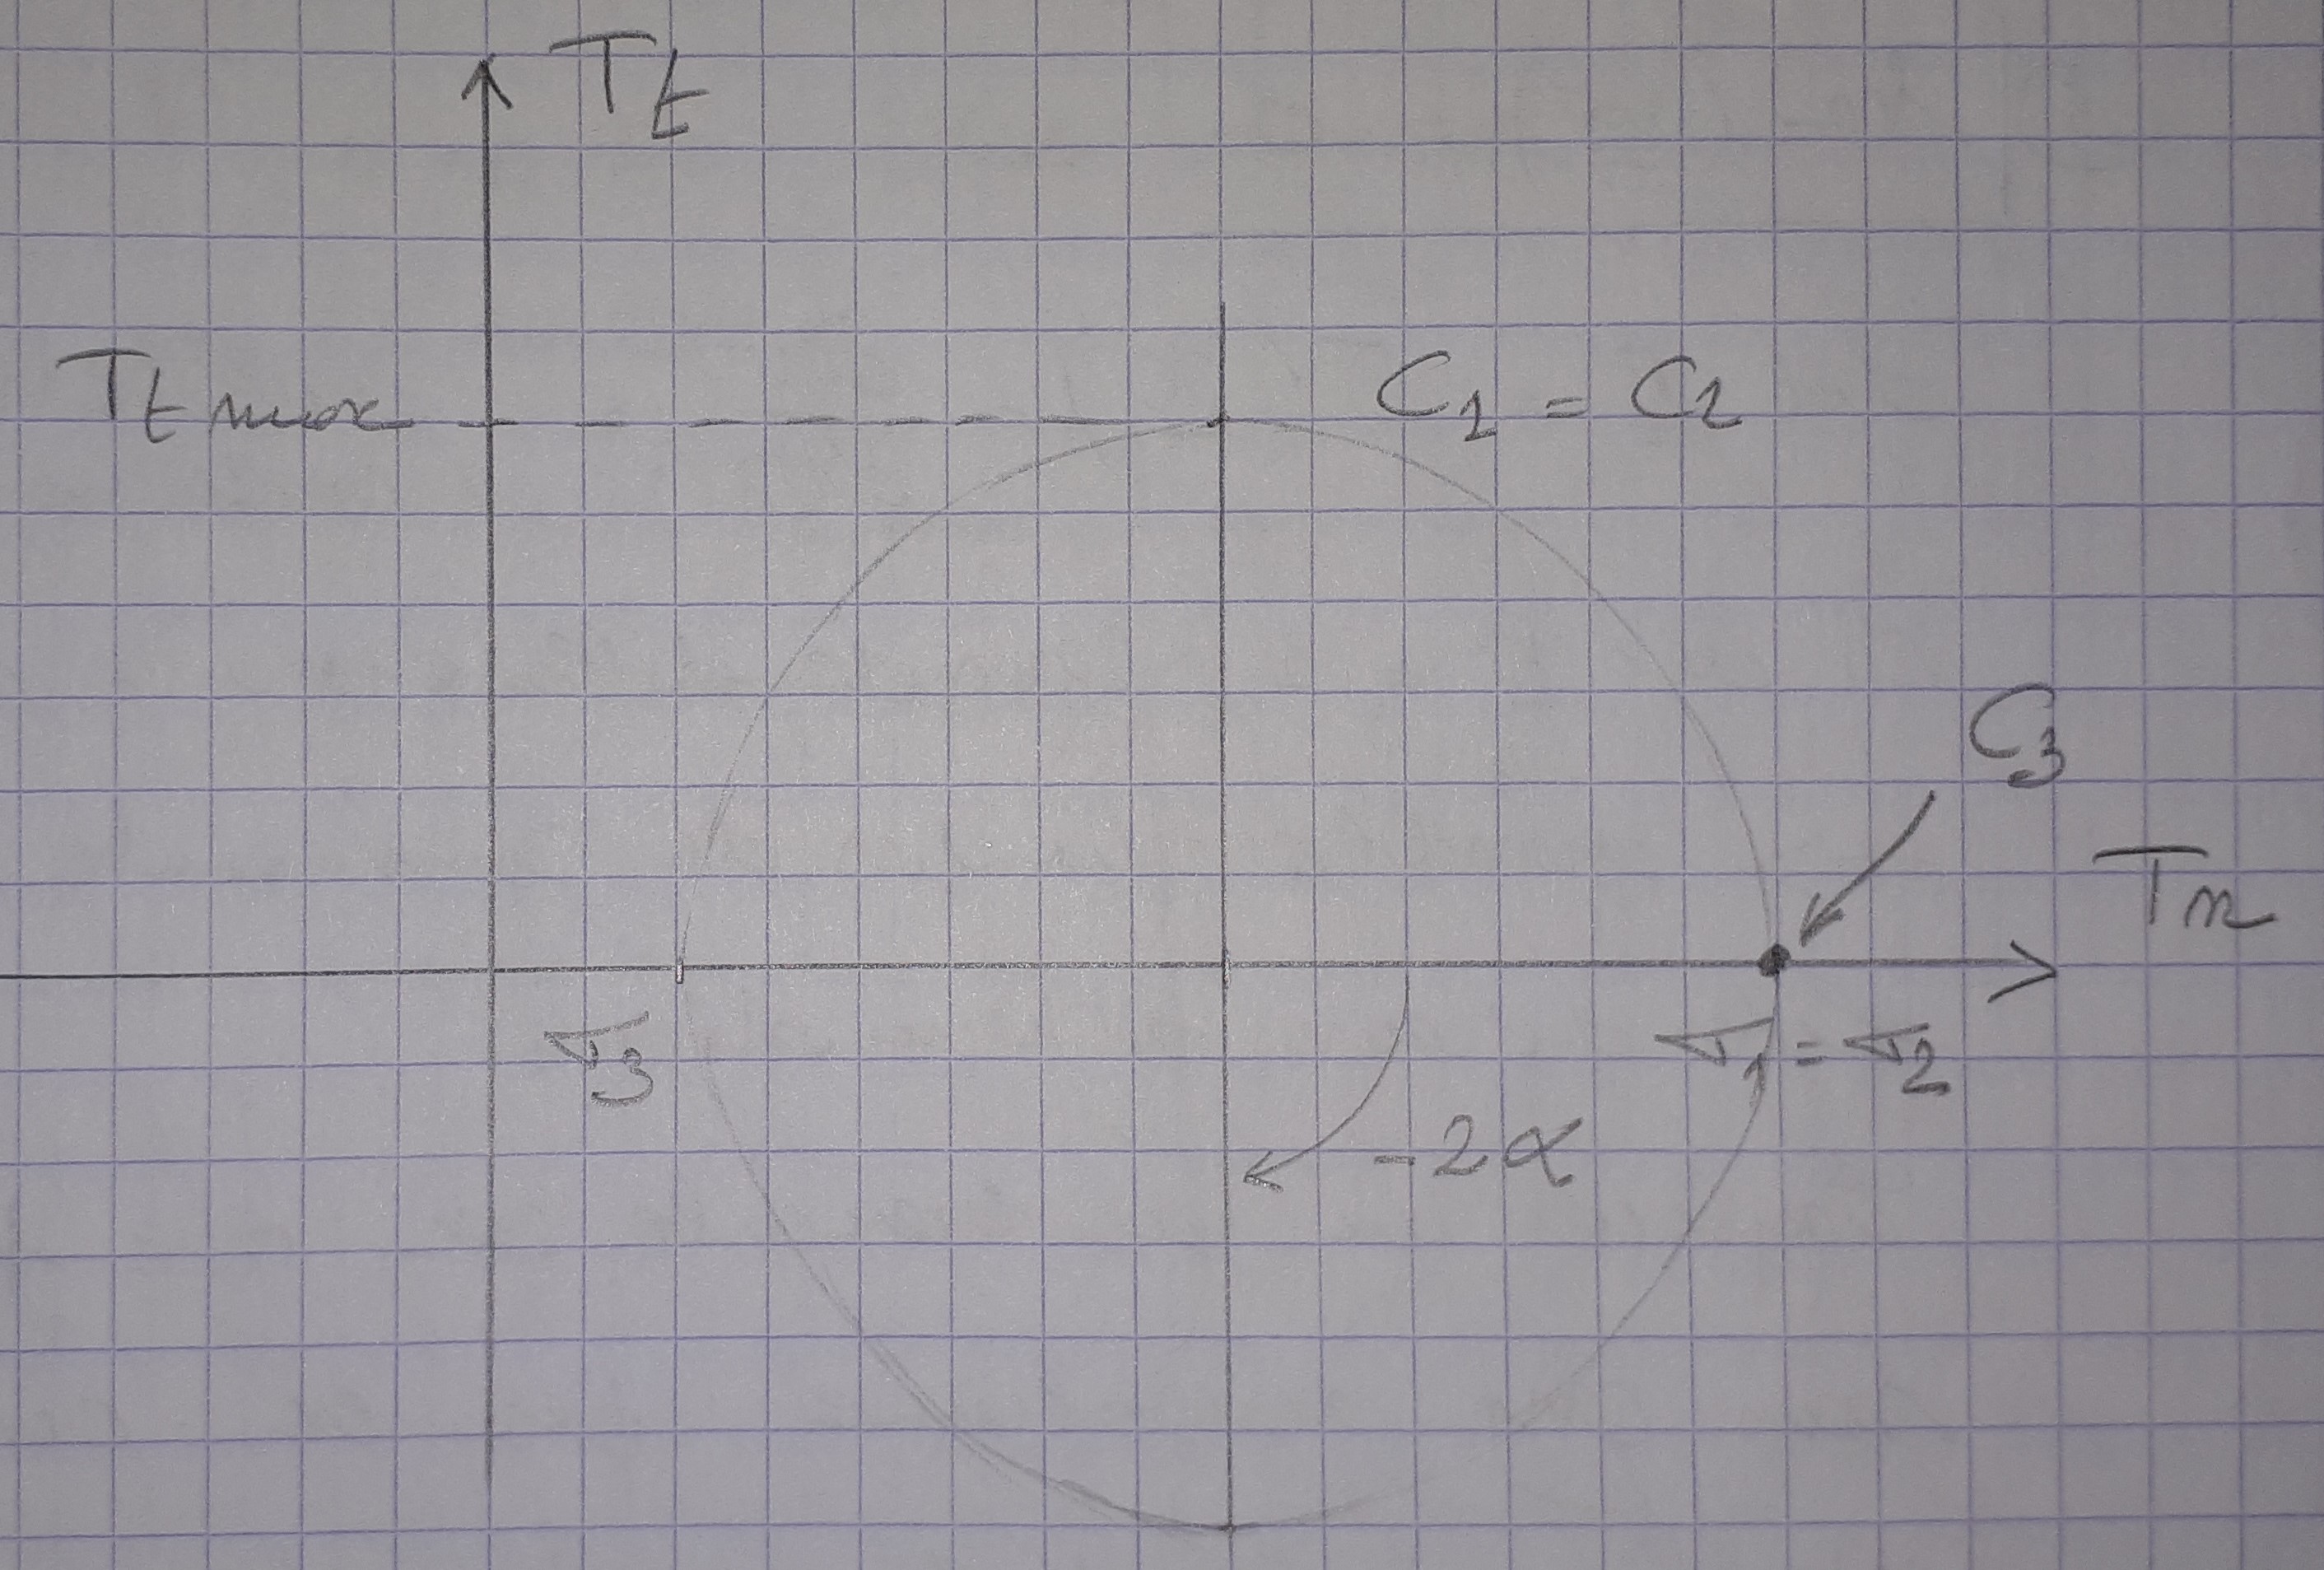 T_t
T_t max
C_1 = C_2
C_3
T_n
σ_3
σ_1 = σ_2
-2α